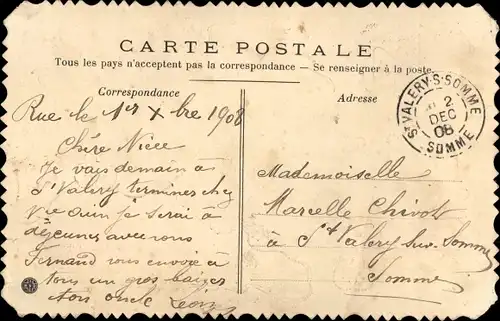 CARTE POSTALE
Tous les pays n'acceptent pas la correspondance — Se renseigner à la poste.
Correspondance
Rue le 1er Xbre 1908
Chère Nièce
Je vais demain à
St Valery terminer chez
je serai à
déjeuner avec vous
Fernand vous envoie à
tous un gros baiser
ton oncle Léon
Adresse
Mademoiselle
Marcelle Chivot
à St Valery sur Somme
Somme
ST VALERY-S-SOMME
2
DEC
08
SOMME